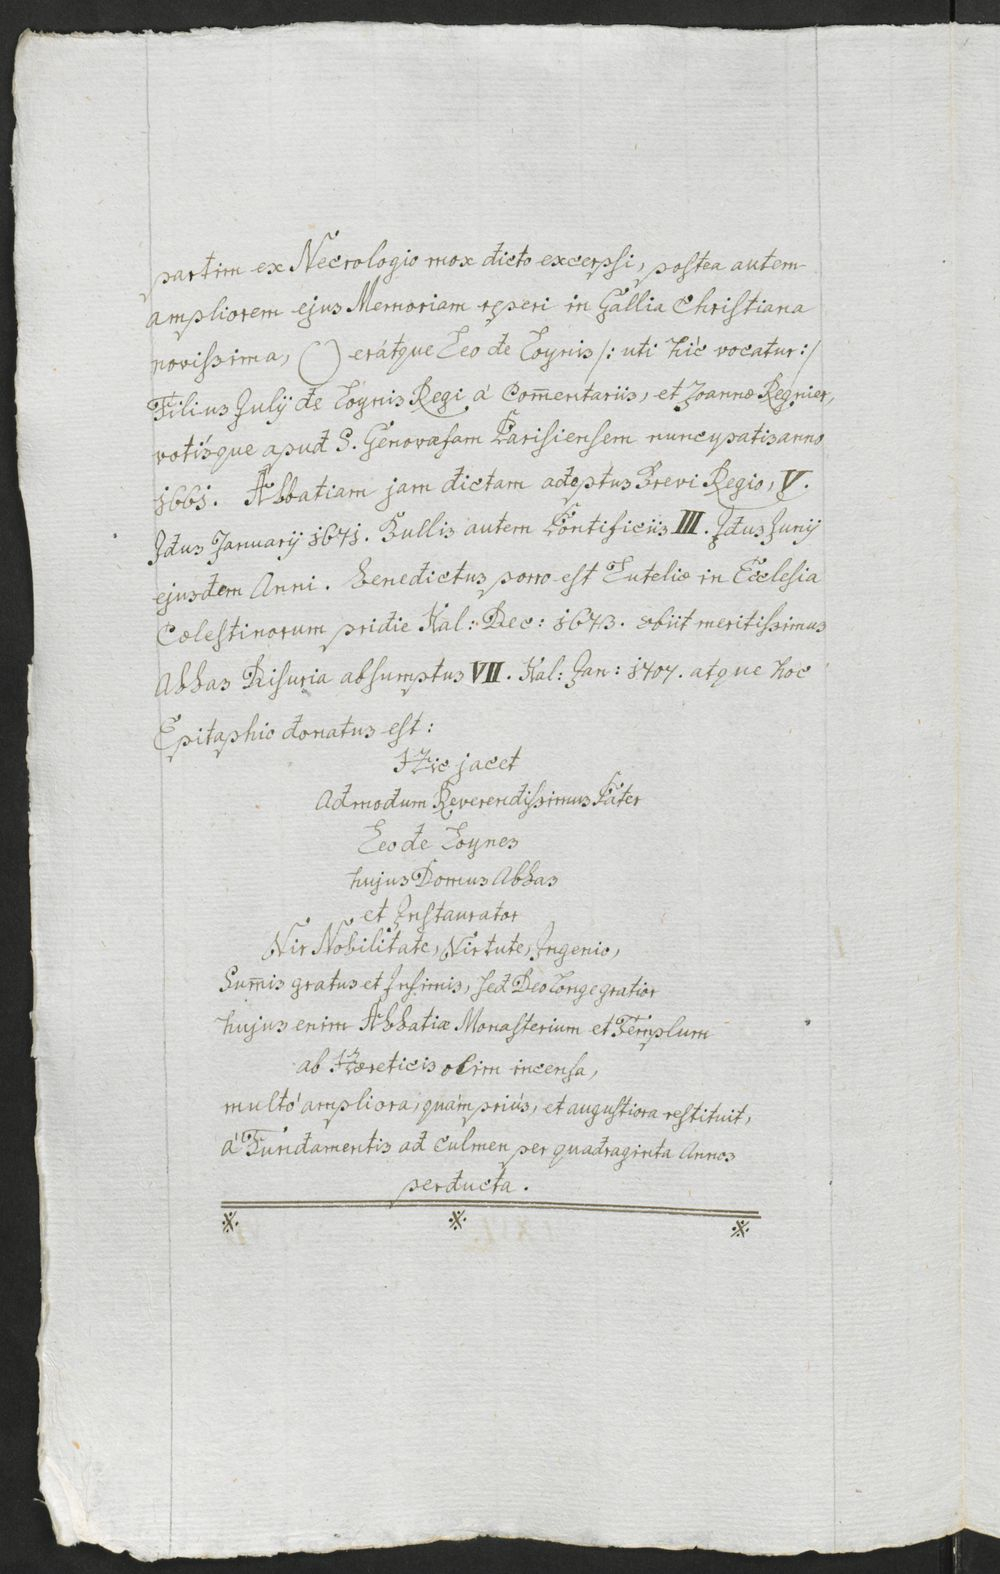 partim ex Necrologio mox dicto excerpsi, postea autem
ampliorem ejus Memoriam reperi in Gallia Christiana
novissima, ( ) erátque Leo de Loynis /: uti hîc vocatur :/
Filius Julÿ de Loynis Regi á Com̄entariis, et Joannæ Regnier,
votísque apud S. Genovæfam Parisiensem nuncupatis anno
1661. Abbatiam jam dictam adeptus Brevi Regio, V.
Idus Januarÿ 1671. Bullis autem Pontificiis III. Idus Junÿ
ejusdem Anni. Benedictus porro est Luteliæ in Ecclesia
Cœlestinorum pridie Kal: Dec: 1673. obiit meritissimus
Abbas Disuria absumptus VII. Kal: Jan: 1707. atque hoc
Epitaphio donatus est:
Hic jacet
Admodum Reverendissimus Pater
Leo de Loynes
hujus Domus Abbas
et Instaurator
Vir Nobilitate, Virtute, Ingenio,
Sum̄is gratus et Infimis, sed Deo longe gratior
hujus enim Abbatiæ Monasterium et Templum
ab Hæreticis olim incensa,
multó ampliora, quám priús, et augustiora restituit,
á Fundamentis ad Culmen per quadraginta Annos
perducta.